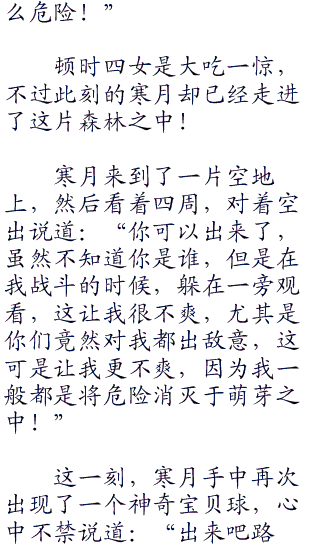 么危险！”
顿时四女是大吃一惊，
不过此刻的寒月却已经走进
了这片森林之中！
寒月来到了一片空地
上，然后看着四周，对着空
出说道：“你可以出来了，
虽然不知道你是谁，但是在
我战斗的时候，躲在一旁观
看，这让我很不爽，尤其是
你们竟然对我都出敌意，这
可是让我更不爽，因为我一
般都是将危险消灭于萌芽之
中！”
这一刻，寒月手中再次
出现了一个神奇宝贝球，心
中不禁说道：“出来吧路